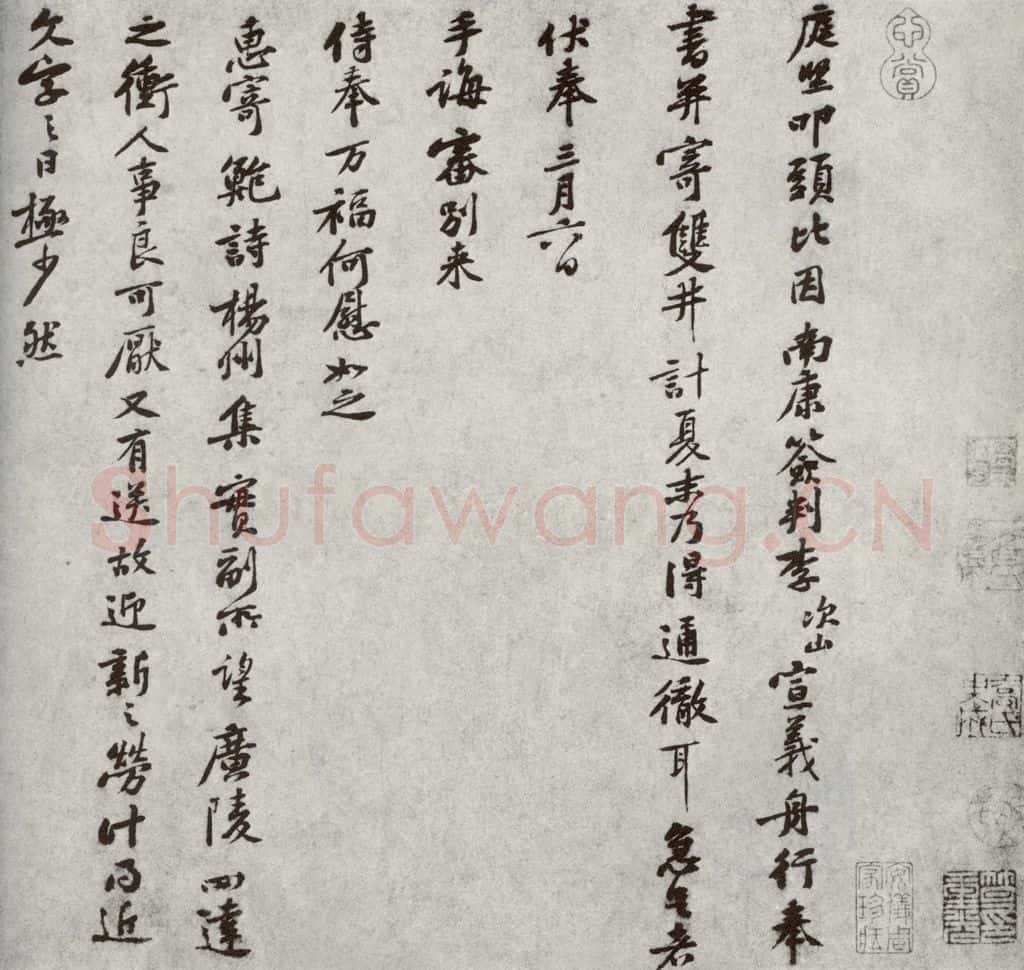 心賞
庭堅叩頭比因南康簽判李次山宣義舟行奉
書并寄雙井計夏末乃得通徹耳急足者
伏奉三月六日
手誨審別来
侍奉万福何慰如之
惠寄鮑詩楊州集實副所望廣陵四達
之衝人事良可厭又有送故迎新之勞計得近
文字之日極少然
安儀周家珍藏
Shufawang.CN